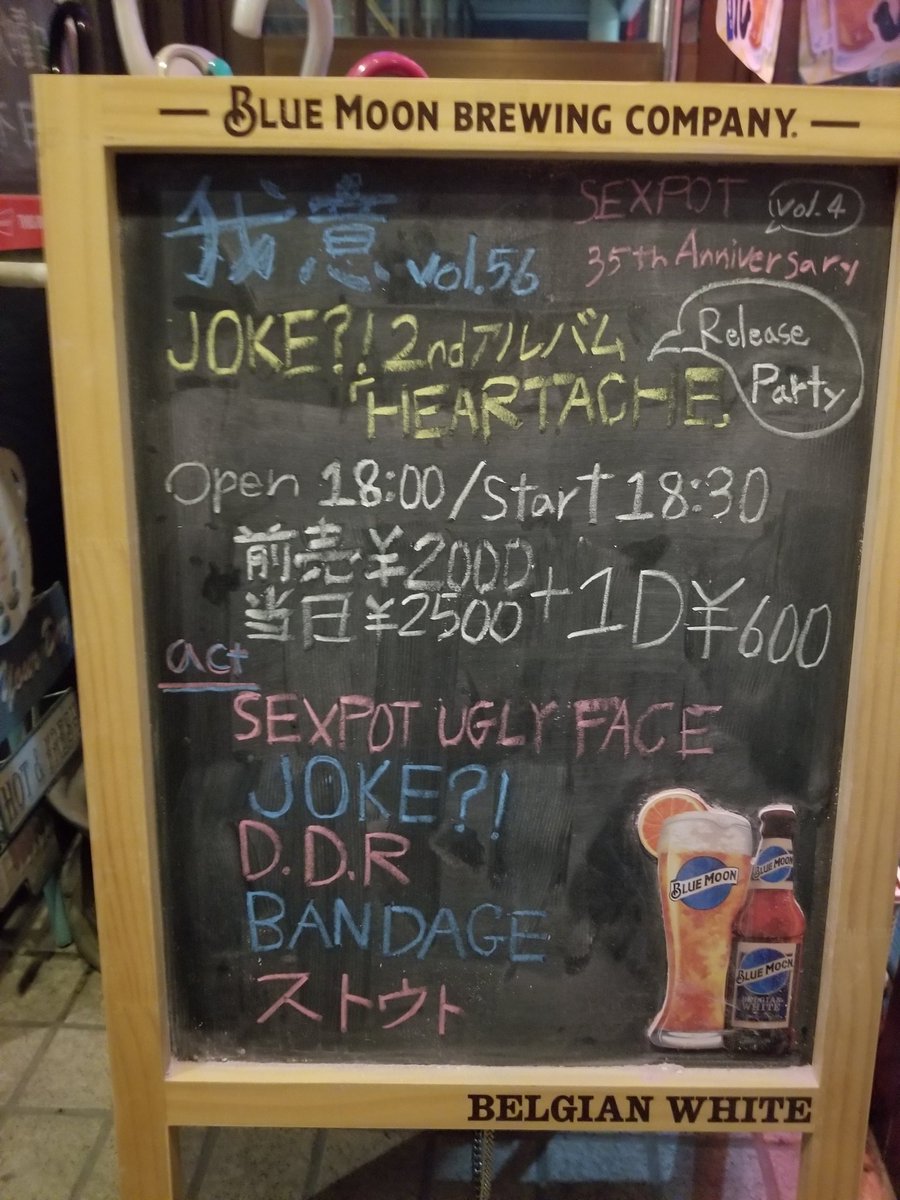 BLUE MOON BREWING COMPANY.
我意 vol.56
SEXPOT vol.4
35th Anniversary
JOKE?! 2ndアルバム
「HEARTACHE」
Release
Party
Open 18:00/Start 18:30
前売¥2000
当日¥2500
+1D¥600
act
SEXPOT UGLY FACE
JOKE?!
D.D.R
BANDAGE
ストウト
BLUE MOON
BLUE MOON
BLUE MOON
BELGIAN
WHITE
BELGIAN WHITE